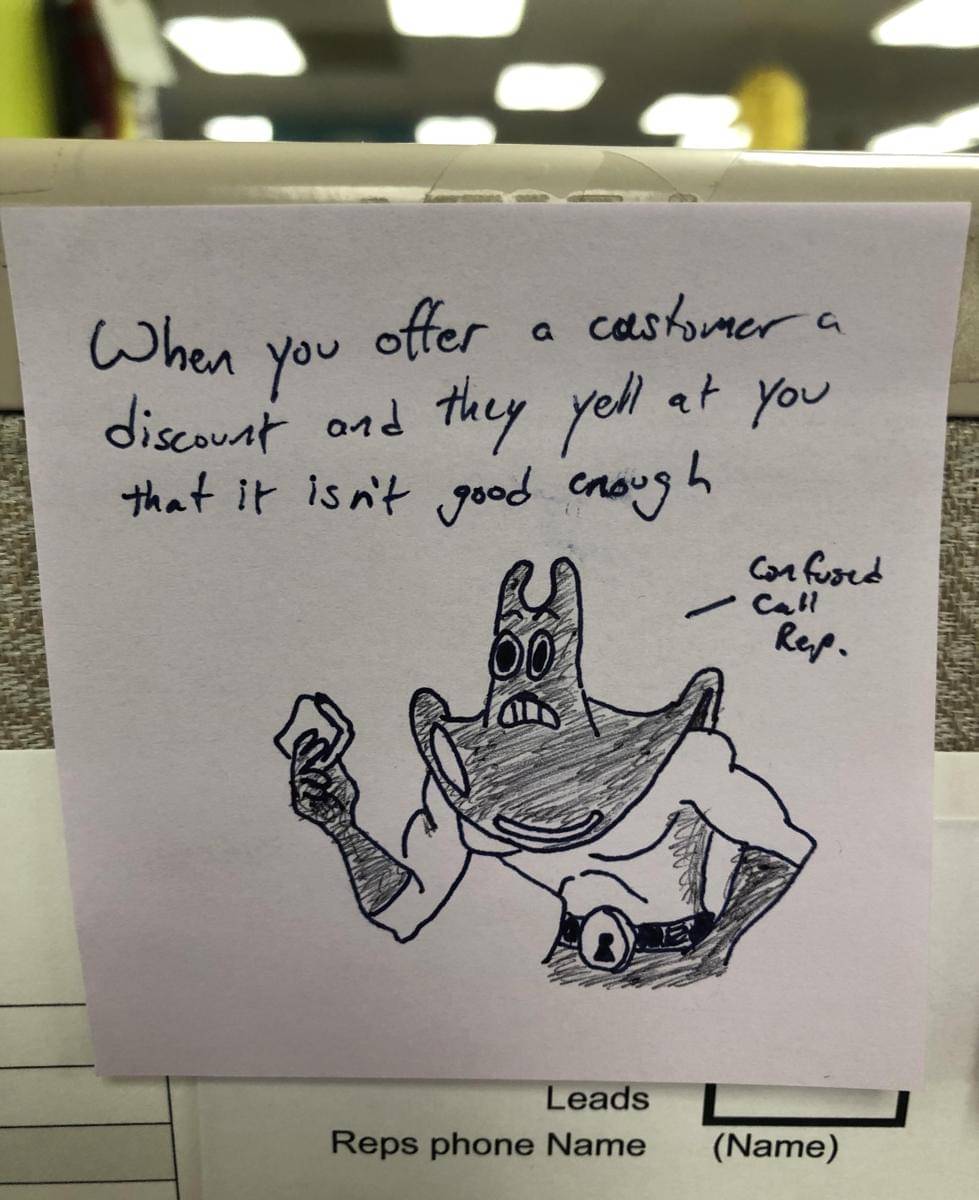 When you offer a customer a
discount and they yell at you
that it isn't good enough
Confused
Call
Rep.
Leads
Reps phone Name (Name)